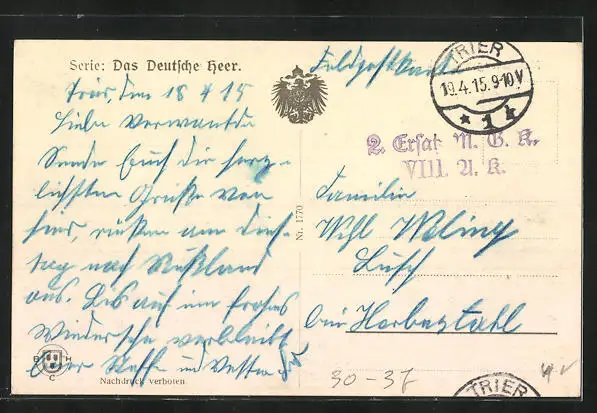 Serie: Das Deutsche Heer.
Trier, den 18 4 15
Liebe Verwandte
Sende Euch die herz-
lichsten Grüße von
hier, rücken am Diens-
tag nach Rußland
aus. Bis auf ein frohes
Wiedersehn verbleibt
Euer Neffe und Vetter
B H C
Nachdruck verboten
Nr. 1770
Feldpostkarte
TRIER
19.4.15.9-10V
* 1 k
2. Ersatz M. G. K.
VIII. A. K.
Familie
Wlh
bei Herbestahl
30-37
TRIER